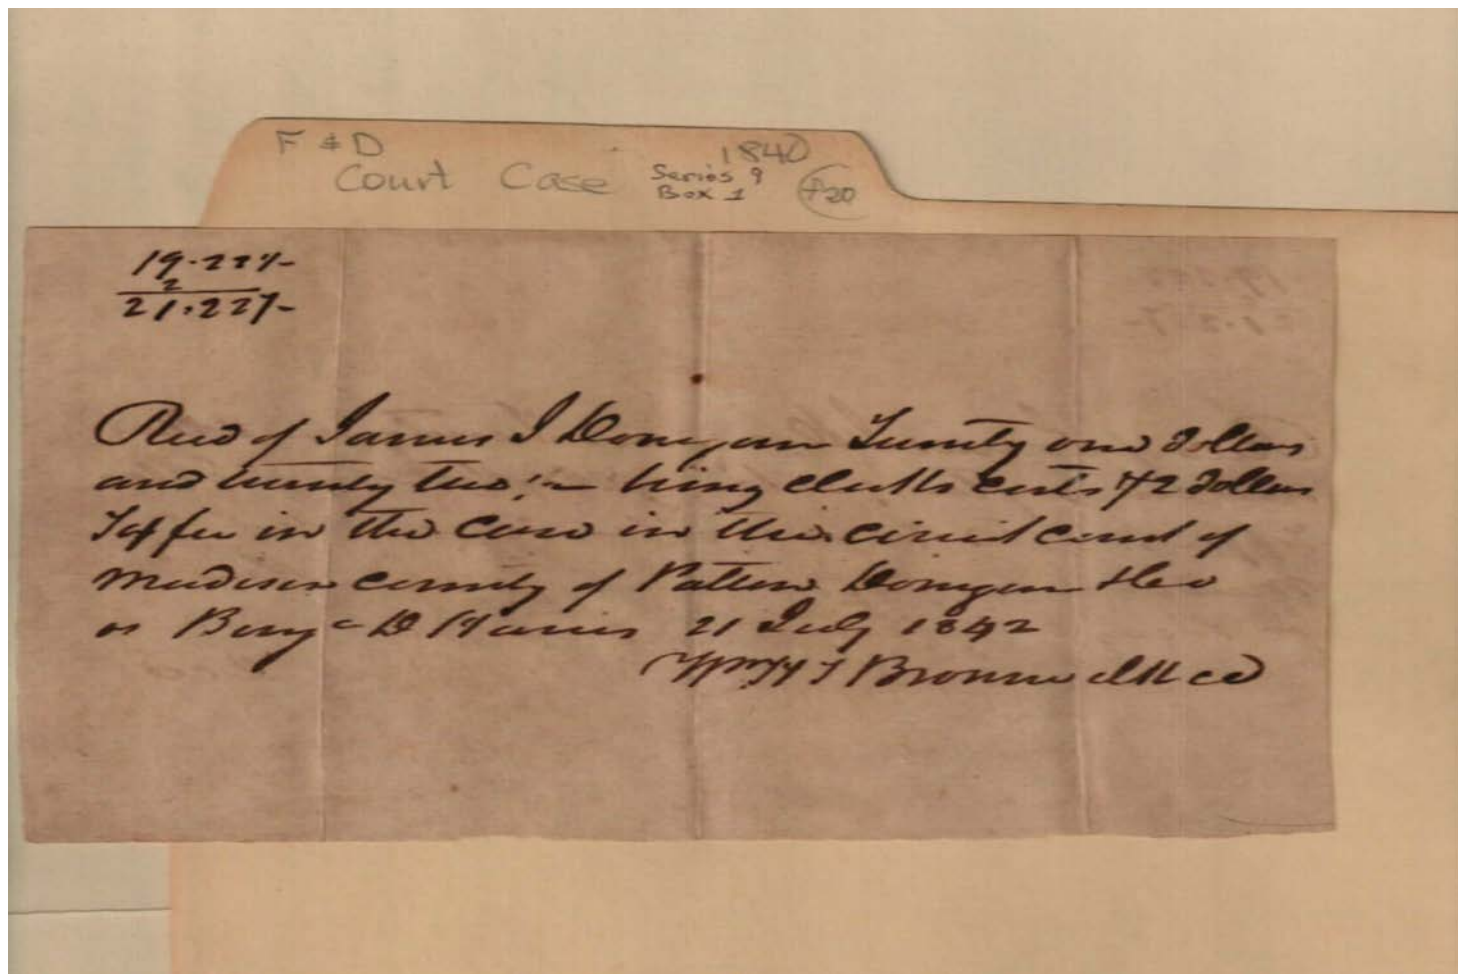 F & D
1840
Court Case
Series 9
Box 1
19.22½
2
21.22½
Recd of James J Donegan Twenty one dollars
and twenty two being clerks costs & 2 dollars
in the case in the circuit court of
Madison County of Patton Donegan & Co
vs Benj D Harris 21 July 1842
Brown clk